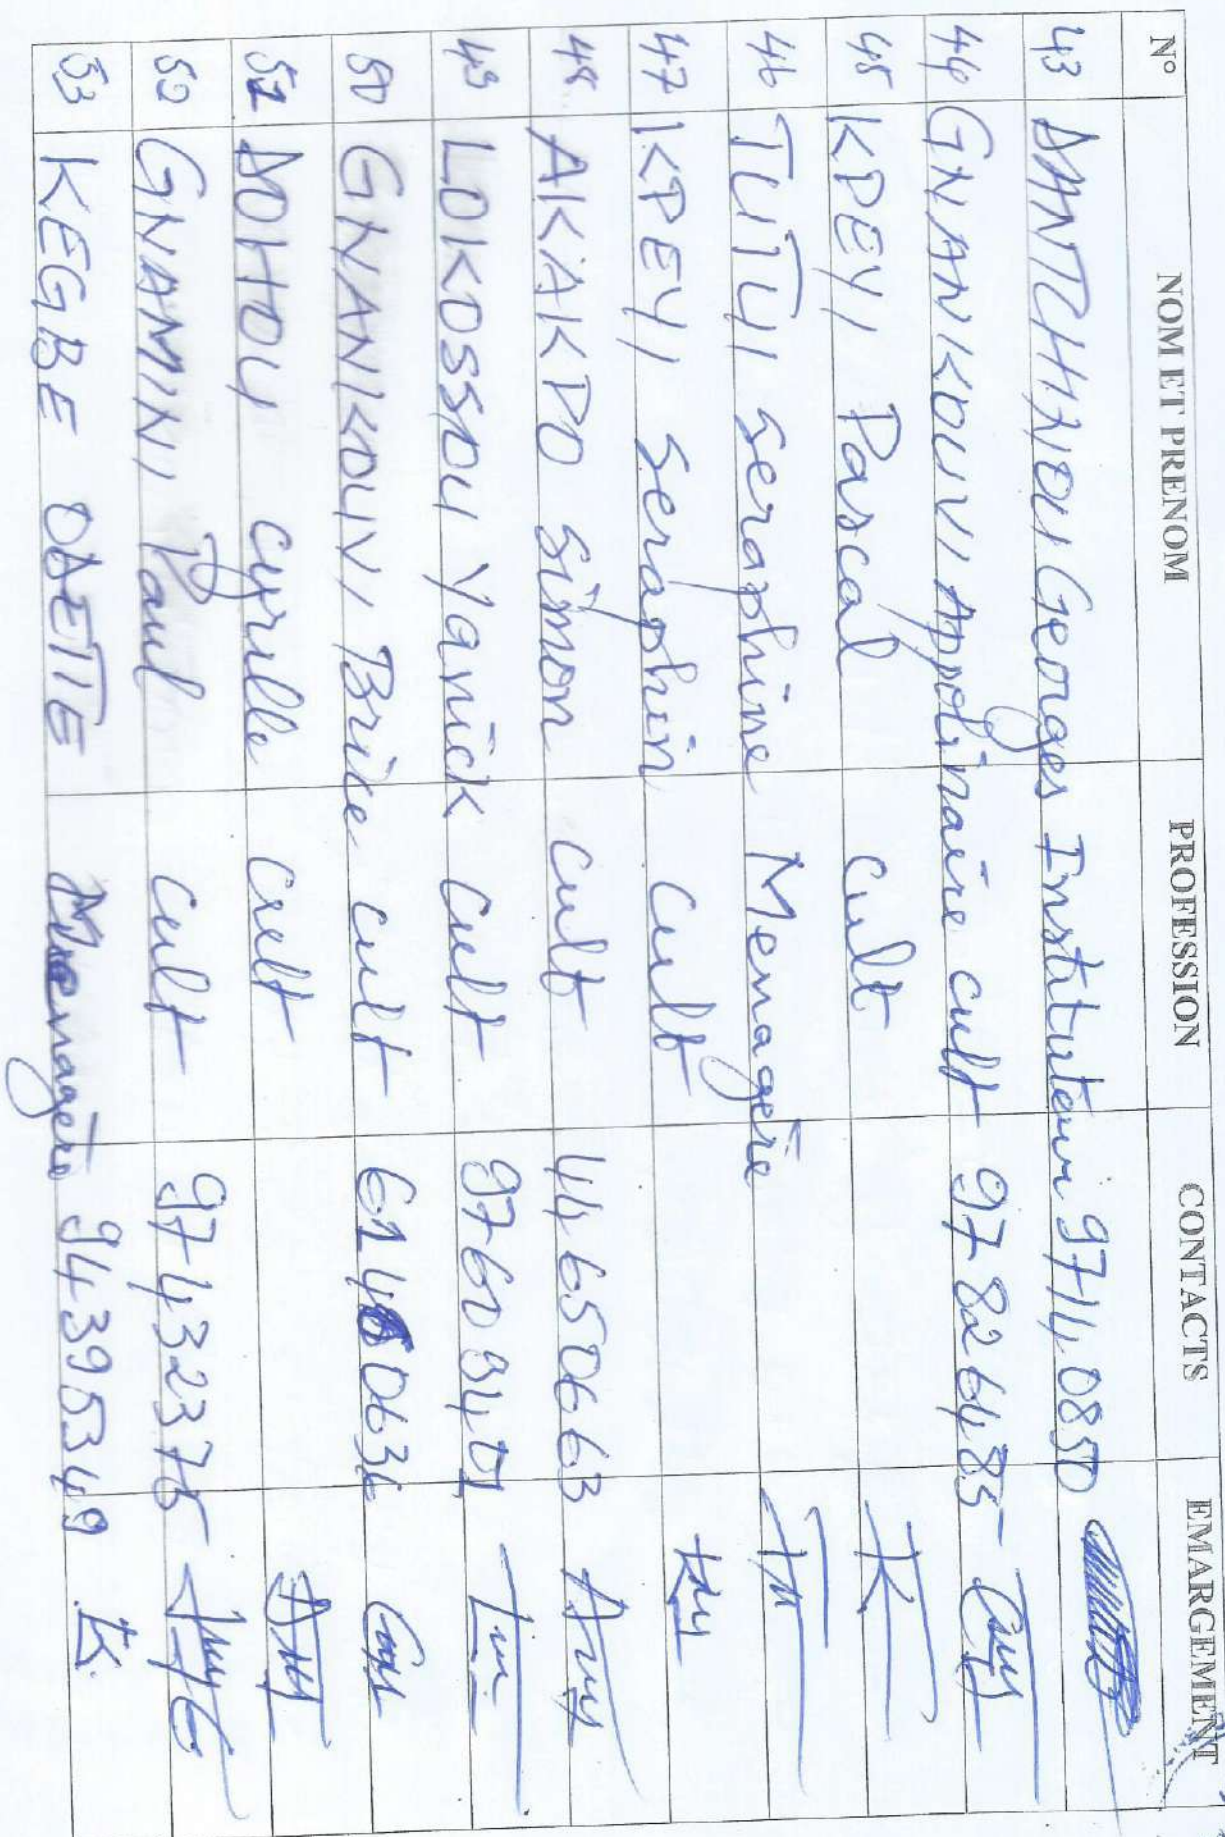 N° NOM ET PRENOM PROFESSION CONTACTS EMARGEMENT
43 Georges Instituteur 97140850
44 GNANIKOUVI Appolinaire cult 97826485
45 KPEYI Pascal cult
46 TUTUI Seraphine Menagère
47 KPEYI Seraphin cult
48 AKAKPO Simon cult 44650663
49 LOKOSSOU Yanick cult 97609401
50 GNANIKOUVI Brice cult
51 DOHOU cyrille cult
52 GNAMINI Paul cult 97432375
53 KEGBE ODETTE Menagère 94395349